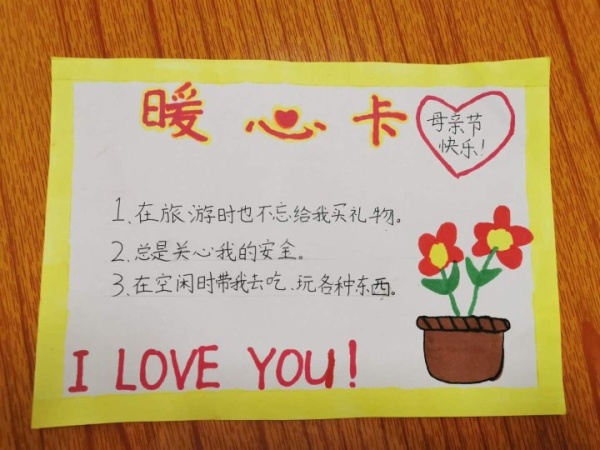 暖心卡
母亲节
快乐!
1、在旅游时也不忘给我买礼物。
2、总是关心我的安全。
3、在空闲时带我去吃、玩各种东西。
I LOVE YOU!